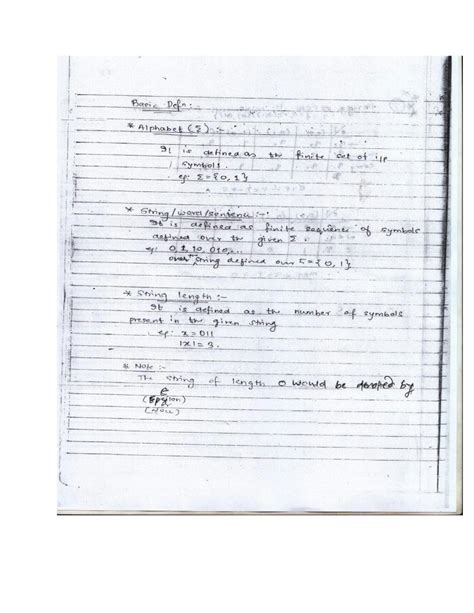 Basic Defn:
* Alphabet (Σ) :-
It is defined as the finite set of i/p
symbols.
eg: Σ = {0, 1}
* String/word/sentence :-
It is defined as finite sequence of symbols
defined over the given Σ.
eg: 0, 1, 10, 010,...
over string defined over Σ = {0, 1}
* String length :-
It is defined as the number of symbols
present in the given string
eg: x = 011
|x| = 3.
* Note :-
The string of length 0 would be denoted by
ε
(Epsilon)
(NULL)